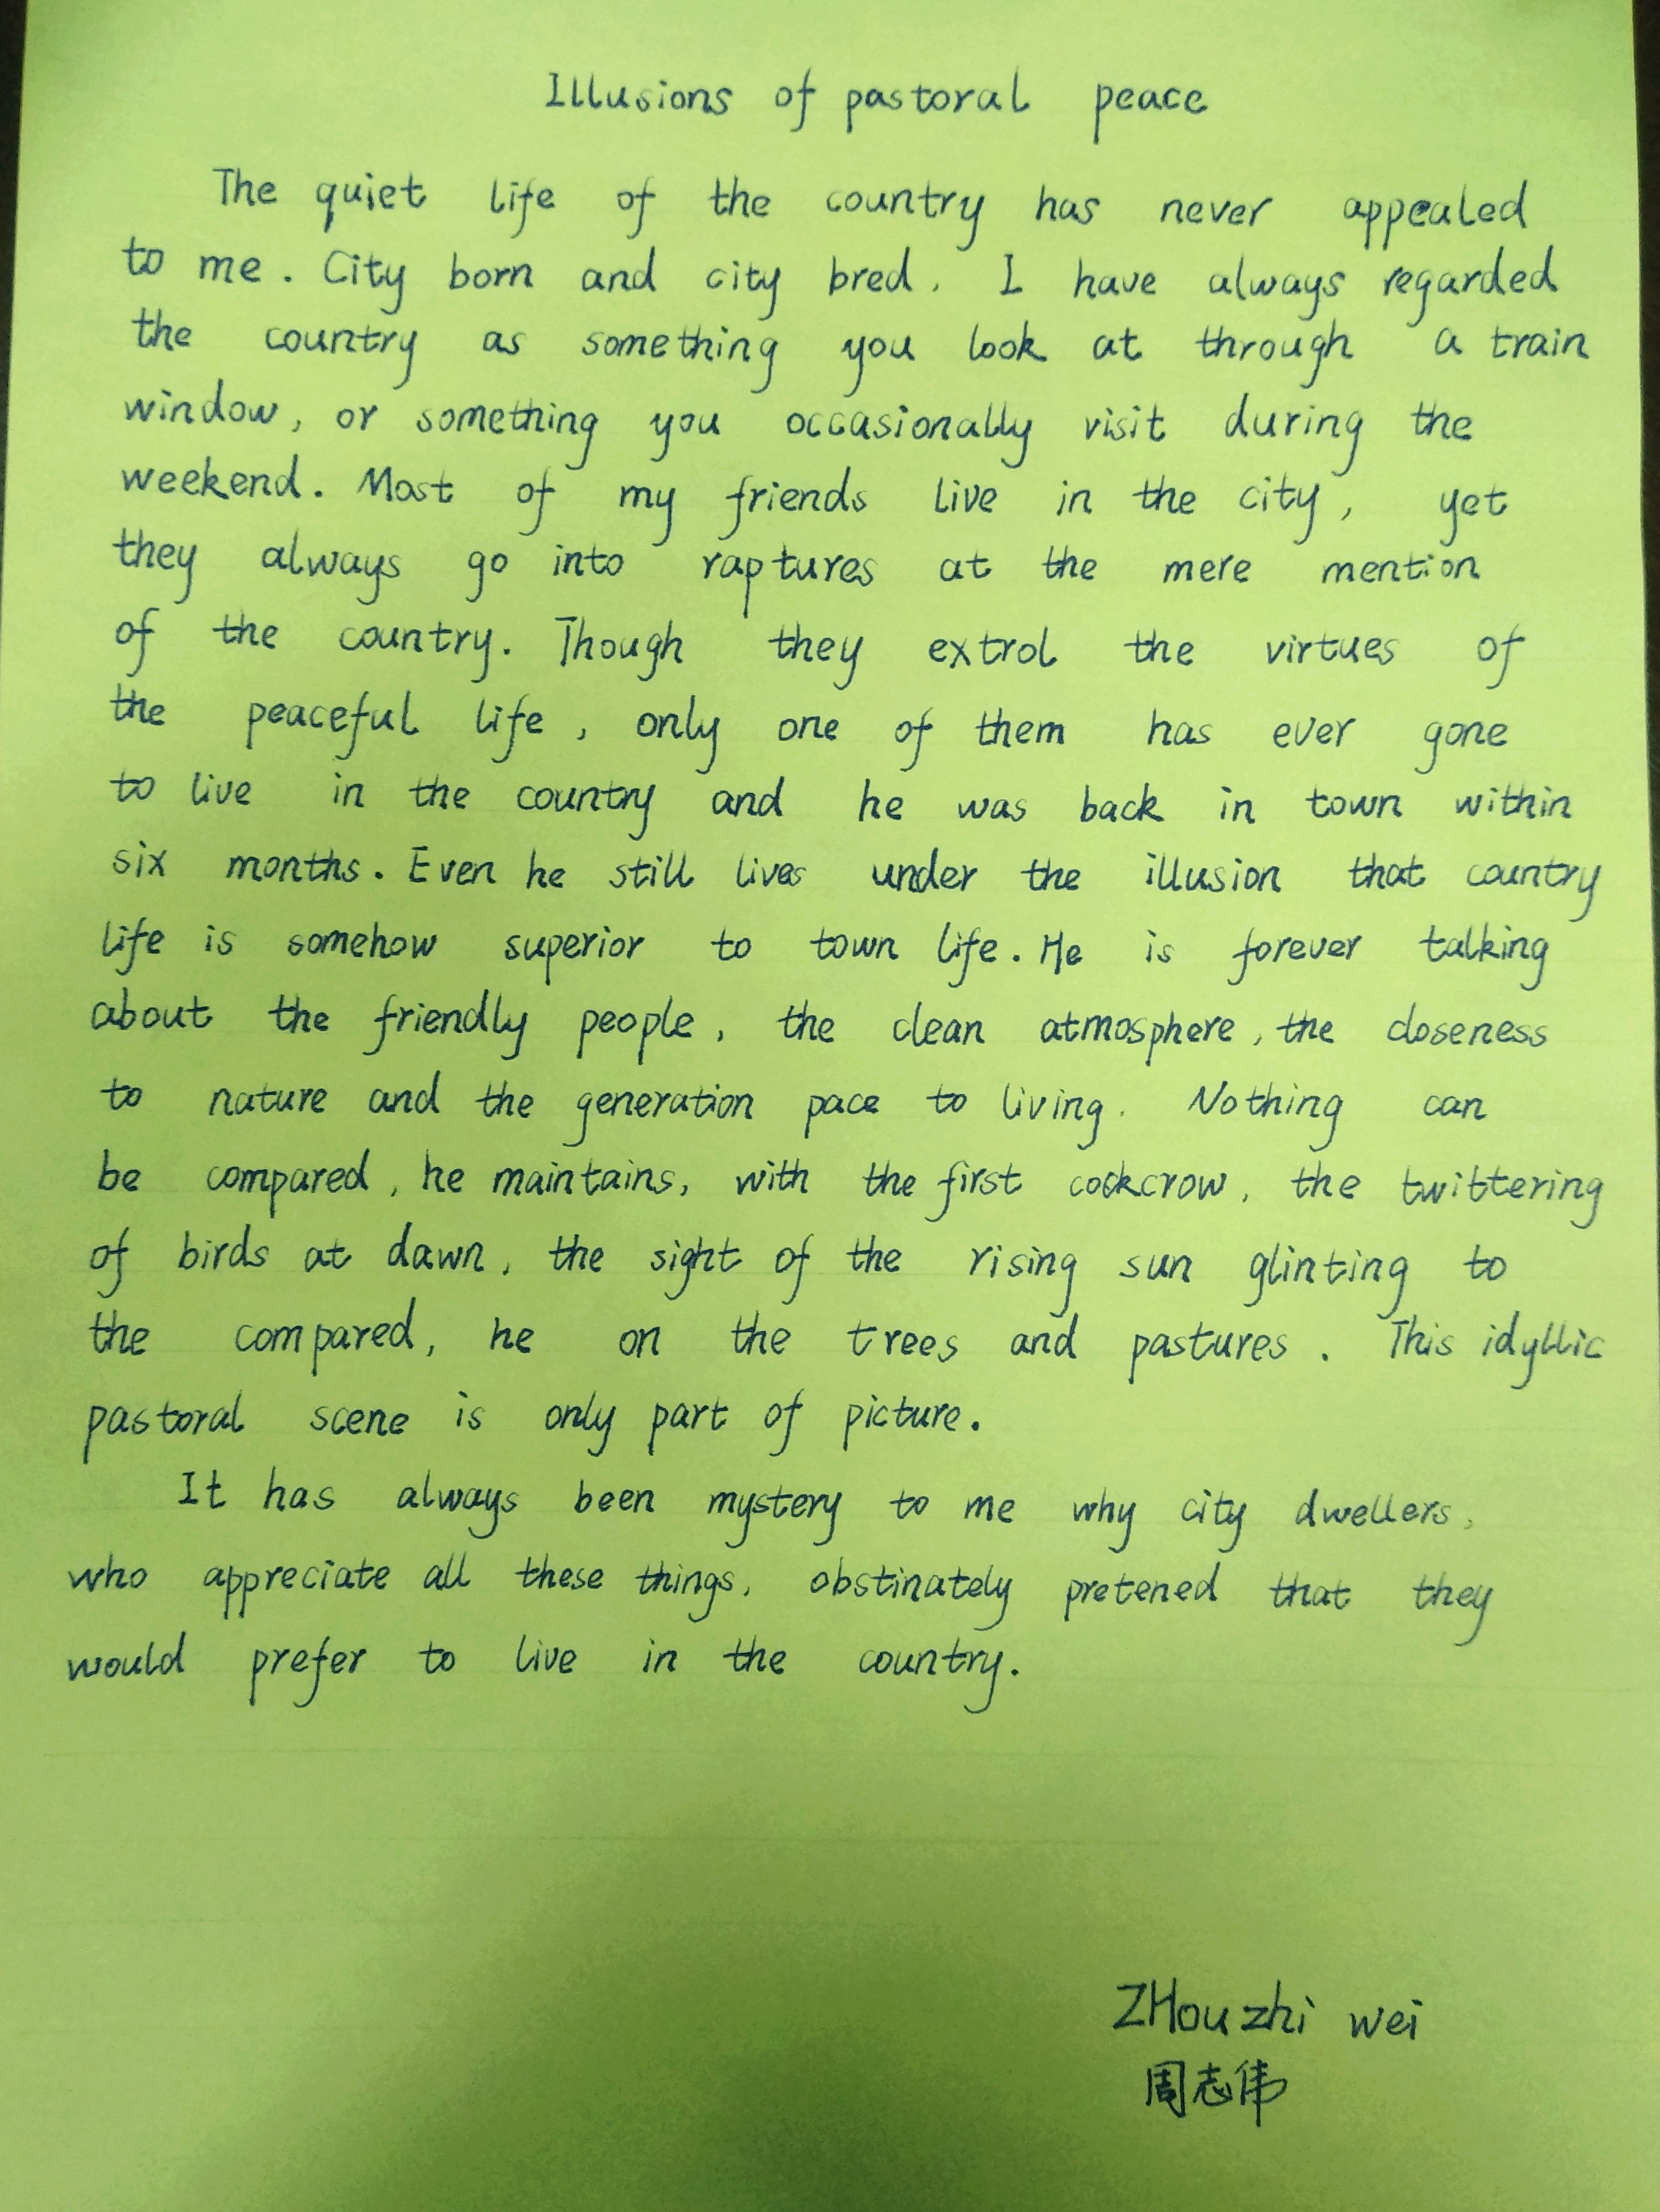 Illusions of pastoral peace
The quiet life of the country has never appealed
to me. City born and city bred, I have always regarded
the country as something you look at through a train
window, or something you occasionally visit during the
weekend. Most of my friends live in the city, yet
they always go into raptures at the mere mention
of the country. Though they extrol the virtues of
the peaceful life, only one of them has ever gone
to live in the country and he was back in town within
six months. Even he still lives under the illusion that country
life is somehow superior to town life. He is forever talking
about the friendly people, the clean atmosphere, the closeness
to nature and the generation pace to living. Nothing can
be compared, he maintains, with the first cockcrow, the twittering
of birds at dawn, the sight of the rising sun glinting to
the compared, he on the trees and pastures. This idyllic
pastoral scene is only part of picture.
It has always been mystery to me why city dwellers,
who appreciate all these things, obstinately pretened that they
would prefer to live in the country.
ZHou zhi wei
周志伟